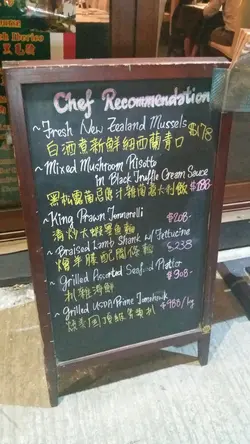 Chef Recommendation
~Fresh New Zealand Mussels
白酒煮新鮮紐西蘭青口 $178
~Mixed Mushroom Risotto
in Black Truffle Cream Sauce
黑松露菌忌廉汁雜菌意大利飯 $188-
~King Prawn Tonnarelli $208-
清炒大蝦墨魚麵
~Braised Lamb Shank w/ Fettucine
燴羊膝配闊條麵 $238
~Grilled Assorted Seafood Platter
扒雜海鮮 $308-
~Grilled USDA Prime Tomahawk
$980/kg